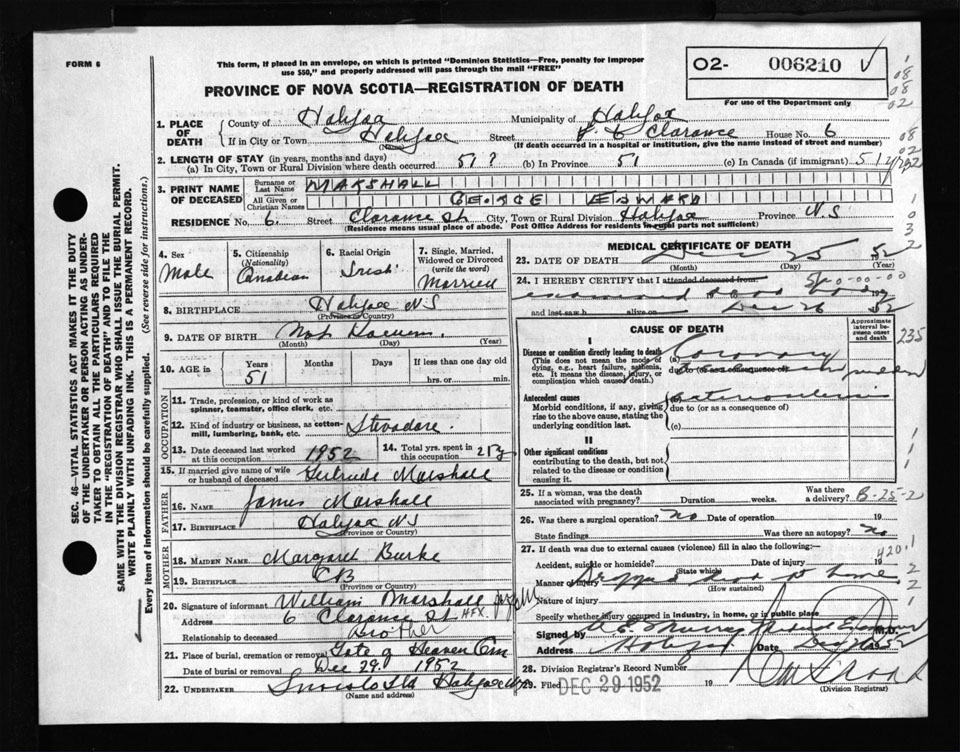 FORM 6
This form, if placed in an envelope, on which is printed "Dominion Statistics—Free, penalty for improper
use $50," and properly addressed will pass through the mail "FREE"
O2- 006210
For use of the Department only
PROVINCE OF NOVA SCOTIA—REGISTRATION OF DEATH
1. PLACE OF DEATH
County of Halifax Municipality of Halifax
If in City or Town Halifax Street Clarance House No. 6
(Name) (If death occurred in a hospital or institution, give the name instead of street and number)
2. LENGTH OF STAY (in years, months and days)
(a) In City, Town or Rural Division where death occurred 51 ? (b) In Province 51 (c) In Canada (if immigrant) 51
3. PRINT NAME OF DECEASED
Surname or Last Name MARSHALL
All Given or Christian Names GEORGE EDWARD
RESIDENCE No. 6. Street Clarance St. City, Town or Rural Division Halifax Province N.S
(Residence means usual place of abode. Post Office Address for residents in rural parts not sufficient)
4. Sex Male
5. Citizenship (Nationality) Canadian
6. Racial Origin Irish
7. Single, Married, Widowed or Divorced (write the word) Married
8. BIRTHPLACE Halifax N.S
(Province or Country)
9. DATE OF BIRTH Not Known.
(Month) (Day) (Year)
10. AGE in Years 51 Months Days If less than one day old hrs. or min.
OCCUPATION
11. Trade, profession, or kind of work as spinner, teamster, office clerk, etc.
12. Kind of industry or business, as cotton-mill, lumbering, bank, etc. Stevadore.
13. Date deceased last worked at this occupation 1952
14. Total yrs. spent in this occupation
15. If married give name of wife or husband of deceased Gertrude Marshall
FATHER
16. NAME James Marshall
17. BIRTHPLACE Halifax N.S
(Province or Country)
MOTHER
18. MAIDEN NAME Margaret Burke
19. BIRTHPLACE C.B
(Province or Country)
20. Signature of informant William Marshall
Address 6 Clarance St HFX.
Relationship to deceased Brother
21. Place of burial, cremation or removal Gate of Heaven Cem
Date of burial or removal Dec 29. 1952
22. UNDERTAKER Halifax
(Name and address)
MEDICAL CERTIFICATE OF DEATH
23. DATE OF DEATH Dec 25 52
(Month) (Day) (Year)
24. I HEREBY CERTIFY that I attended deceased from
examined
and last saw h alive on Dec 26 52
CAUSE OF DEATH
Approximate interval between onset and death
I
Disease or condition directly leading to death (a) Coronary
(This does not mean the mode of dying, e.g., heart failure, asthenia, etc. It means the disease, injury, or complication which caused death.)
due to (or as a consequence of)
Antecedent causes
Morbid conditions, if any, giving rise to the above cause, stating the underlying condition last.
due to (or as a consequence of)
(c)
II
Other significant conditions
contributing to the death, but not related to the disease or condition causing it.
25. If a woman, was the death associated with pregnancy? Duration weeks. Was there a delivery? B-25-2
26. Was there a surgical operation? no Date of operation 19
State findings Was there an autopsy? no
27. If death was due to external causes (violence) fill in also the following:—
420.1
Accident, suicide or homicide? Date of injury 19
(State which)
Manner of injury Dropped dead at home
(How sustained)
Nature of injury
Specify whether injury occurred in industry, in home, or in public place
Signed by Murray Medical Examiner M.D.
Address Halifax Date
28. Division Registrar's Record Number
29. Filed DEC 29 1952 19
(Division Registrar)
SEC. 46—VITAL STATISTICS ACT MAKES IT THE DUTY
OF THE UNDERTAKER OR PERSON ACTING AS UNDER-
TAKER TO OBTAIN ALL THE PARTICULARS REQUIRED
IN THE "REGISTRATION OF DEATH" AND TO FILE THE
SAME WITH THE DIVISION REGISTRAR WHO SHALL ISSUE THE BURIAL PERMIT.
WRITE PLAINLY WITH UNFADING INK. THIS IS A PERMANENT RECORD.
Every item of information should be carefully supplied. (See reverse side for instructions.)